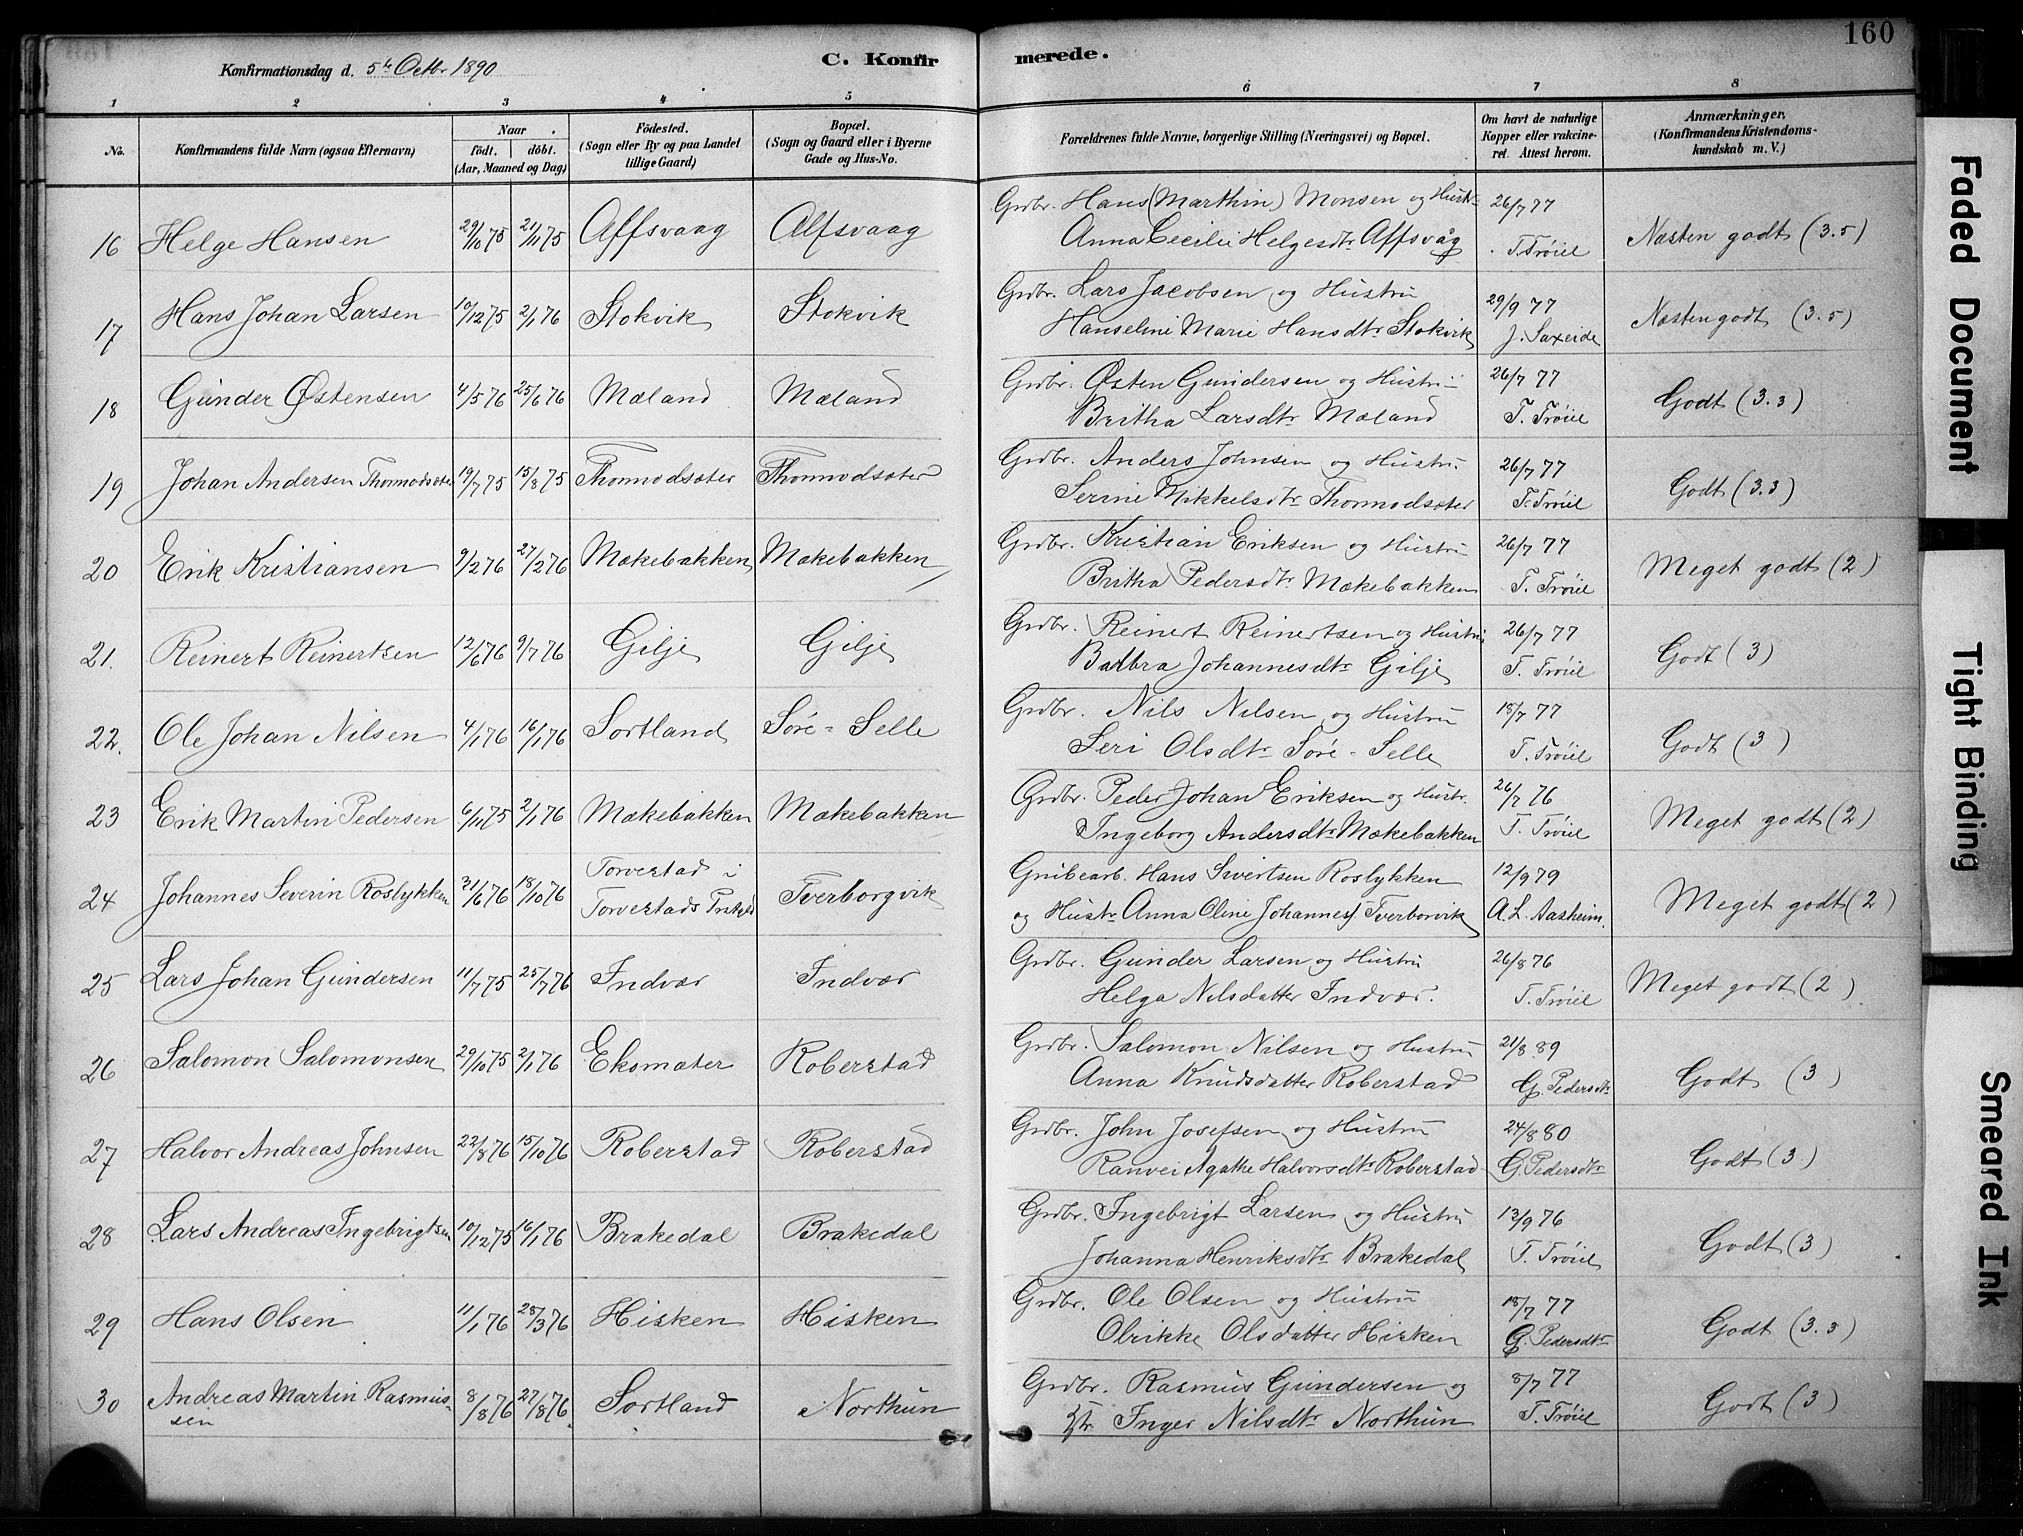 160
Konfirmationsdag d. 5te Octbr 1890
C. Konfir merede.
1 2 3 4 5 6 7 8
No.
Konfirmandens fulde Navn (ogsaa Efternavn)
Naar
födt. döbt.
(Aar, Maaned og Dag)
Födested.
(Sogn eller By og paa Landet
tillige Gaard)
Bopæl.
(Sogn og Gaard eller i Byerne
Gade og Hus-No.
Forældrenes fulde Navne, borgerlige Stilling (Næringsvei) og Bopæl.
Om havt de naturlige
Kopper eller vakcine-
ret. Attest herom.
Anmærkninger,
(Konfirmandens Kristendoms-
kundskab m. V.)
Grdbr. Hans (Marthin) Monsen og Hustr 26/7 77
16 Helge Hansen 29/10 75 21/11 75 Affsvaag Alfsvaag Anna Cecilie Helgesdtr Affsvåg T. Trøiel Næsten godt (3.5)
Grdbr. Lars Jacobsen og Hustru 29/9 77
17 Hans Johan Larsen 10/12 75 2/1 76 Stokvik Stokvik Hanseline Marie Hansdtr Stokvik J. Saxeide Næsten godt (3.5)
Grdbr. Østen Gundersen og Hustru 26/7 77
18 Gunder Østensen 4/5 76 25/6 76 Mæland Mæland Britha Larsdtr Mæland T. Trøiel Godt (3.3)
Grdbr. Anders Johnsen og Hustru 26/7 77
19 Johan Andersen Thormodsæter 19/7 75 15/8 75 Thormodsæter Thormodsæter Serine Mikkelsdtr Thormodsæter T. Trøiel Godt (3.3)
Grdbr. Kristian Eriksen og Hustru 26/7 77
20 Erik Kristiansen 9/2 76 27/2 76 Mækebakken Mækebakken Britha Pedersdtr Mækebakken T. Trøiel Meget godt (2)
Grdbr. Reinert Reinertsen og Hustru 26/7 77
21. Reinert Reinertsen 12/6 76 9/7 76 Gilje Gilje Barbra Johannesdtr Gilje T. Trøiel Godt (3)
Grdbr. Nils Nilsen og Hustru 18/7 77
22. Ole Johan Nilsen 4/1 76 16/1 76 Sortland Søre-Selle Seri Olsdtr Søre-Selle T. Trøiel Godt (3)
Grdbr. Peder Johan Eriksen og Hustr. 26/7 76
23 Erik Martin Pedersen 6/11 75 2/1 76 Mækebakken Mækebakken Ingeborg Andersdtr Mækebakken T. Trøiel Meget godt (2)
Torvestad i Grubearb. Hans Sivertsen Roslykken 12/9 79
24 Johannes Severin Roslykken 21/6 76 18/10 76 Torvestads Prstgjld Tverborgvik og Hustr Anna Oline Johannesd. Tverborvik A. L. Aasheim. Meget godt (2)
Grdbr. Gunder Larsen og Hustru 26/8 76
25 Lars Johan Gundersen 11/7 75 25/7 76 Indvær Indvær Helga Nilsdatter Indvær. T. Trøiel Meget godt (2)
Grdbr. Salomon Nilsen og Hustru 21/8 89
26 Salomon Salomonsen 29/10 75 2/1 76 Eksmæter Roberstad Anna Knudsdatter Roberstad G. Pedersdtr Godt (3)
Grdbr. John Josefsen og Hustru 24/8 80
27 Halvor Andreas Johnsen 22/8 76 15/10 76 Roberstad Roberstad Ranvei Agathe Halvorsdtr Roberstad G. Pedersdtr Godt (3)
Grdbr. Ingebrigt Larsen og Hustru 13/9 76
28 Lars Andreas Ingebrigtsen 10/12 75 16/1 76 Brakedal Brakedal Johanna Henriksdtr Brakedal T. Trøiel Godt (3)
Grdbr. Ole Olsen og Hustru 18/7 77
29 Hans Olsen 11/1 76 28/3 76 Hisken Hisken Olrikke Olsdatter Hisken G. Pedersdtr Godt (3.3)
Grdbr. Rasmus Gundersen og 8/7 77
30 Andreas Martin Rasmus- 8/8 76 27/8 76 Sortland Northun Hstr Inger Nilsdtr Northun T. Trøiel Godt (3)
sen
Faded Document
Tight Binding
Smeared Ink